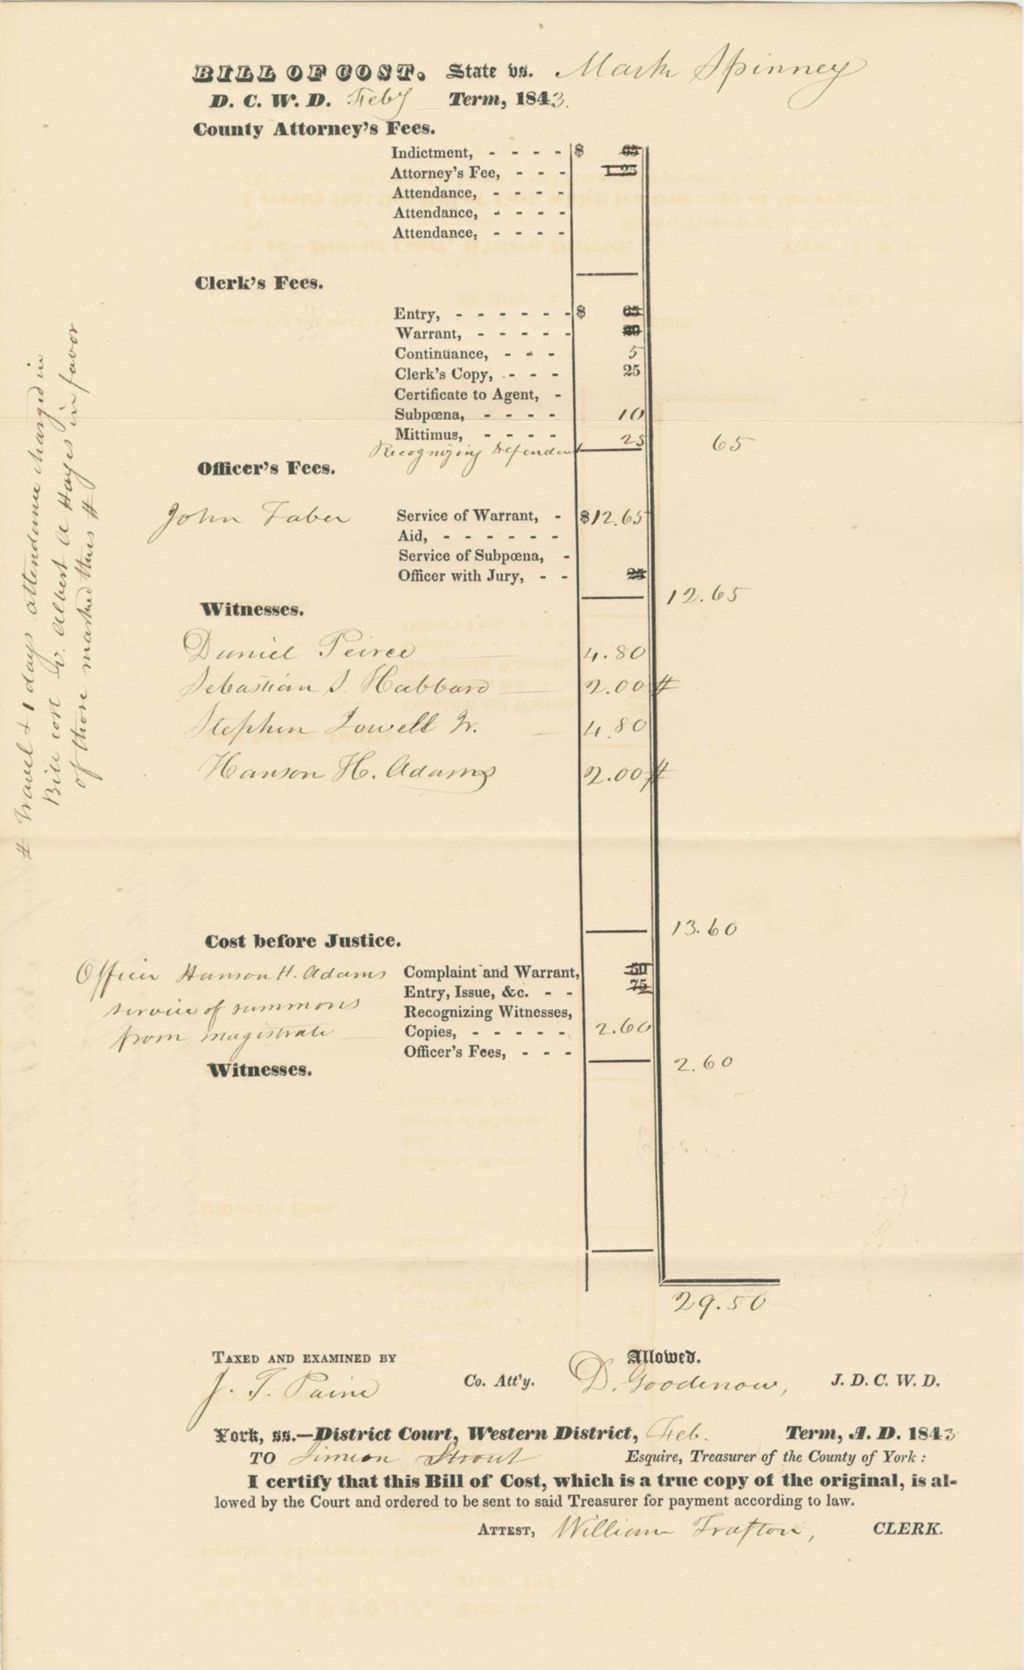 BILL OF COST. State vs. Mark Spinney
D. C. W. D. Feby Term, 1843.
County Attorney's Fees.
Indictment, - - - - $ 65
Attorney's Fee, - - - 1 25
Attendance, - - - -
Attendance, - - - -
Attendance, - - - -
Clerk's Fees.
Entry, - - - - - - $ 65
Warrant, - - - - -
Continuance, - - - 5
Clerk's Copy, - - - 25
Certificate to Agent, -
Subpœna, - - - - 10
Mittimus, - - - - 25 65
Recognizing Defendant
Officer's Fees.
John Faber Service of Warrant, - $12.65
Aid, - - - - - -
Service of Subpœna, -
Officer with Jury, - - 25
12.65
Witnesses.
Daniel Peirce 4.80
Sebastian S. Hubbard 2.00 #
Stephen Lowell Jr. 4.80
Hanson H. Adams 2.00 #
13.60
Cost before Justice.
Officer Hanson H. Adams Complaint and Warrant, 50
service of summons Entry, Issue, &c. - - 75
from magistrate Recognizing Witnesses,
Copies, - - - - - 2.60
Officer's Fees, - - -
2.60
Witnesses.
29.50
# Travel & 1 days attendance charged in
Bill cost v. Albert A Hayes in favor
of those marked thus #
TAXED AND EXAMINED BY Allowed.
J. T. Paine Co. Att'y. D. Goodenow, J. D. C. W. D.
York, ss.—District Court, Western District, Feb. Term, A. D. 1843
TO Simeon Strout Esquire, Treasurer of the County of York:
I certify that this Bill of Cost, which is a true copy of the original, is al-
lowed by the Court and ordered to be sent to said Treasurer for payment according to law.
ATTEST, William Trafton, CLERK.